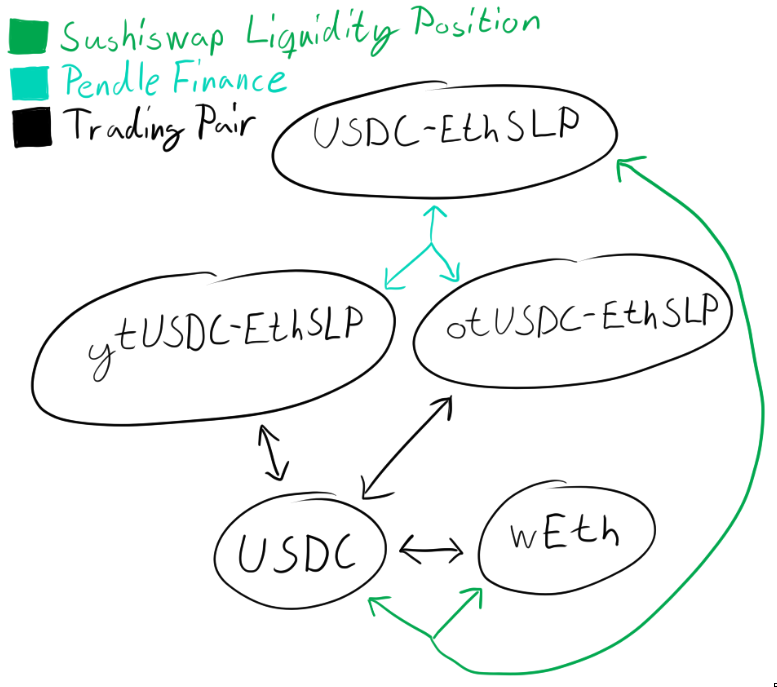 Sushiswap Liquidity Position
Pendle Finance
Trading Pair
USDC-EthSLP
ytUSDC-EthSLP
otUSDC-EthSLP
USDC
wEth